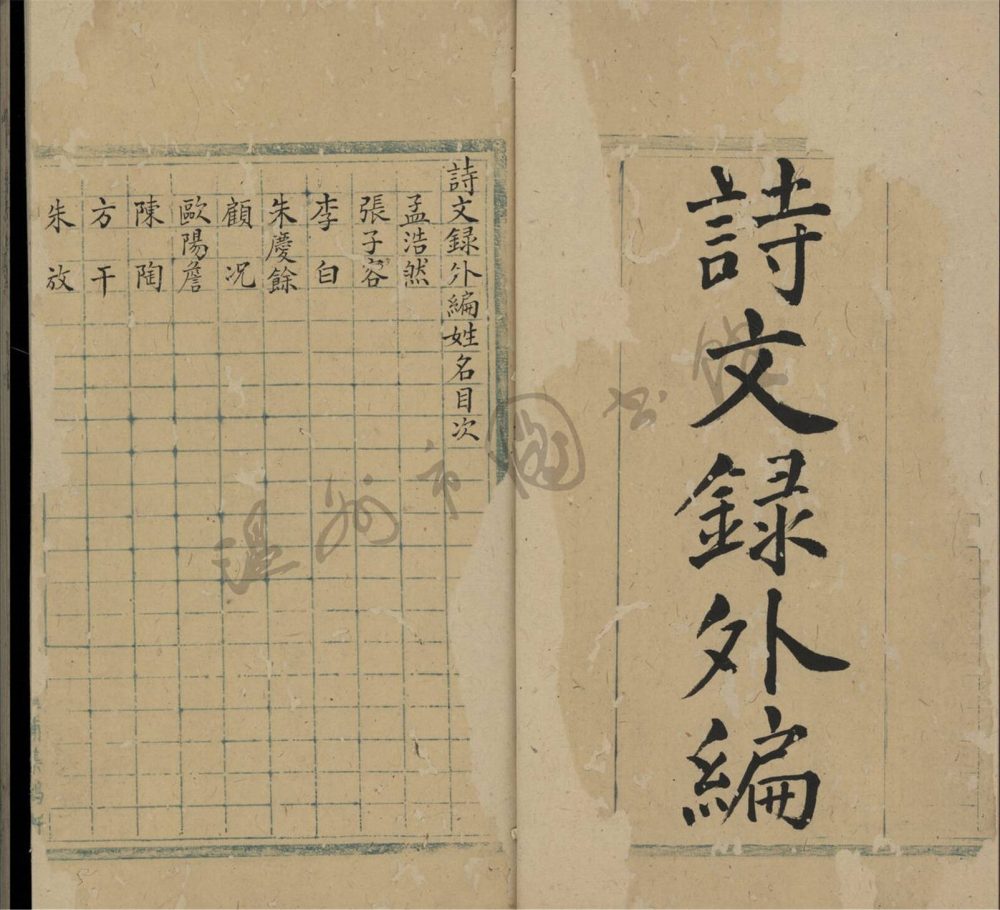 詩文録外編
詩文録外編姓名目次
孟浩然
張子容
李白
朱慶餘
顧况
歐陽詹
陳陶
方干
朱放
温州市圖书馆